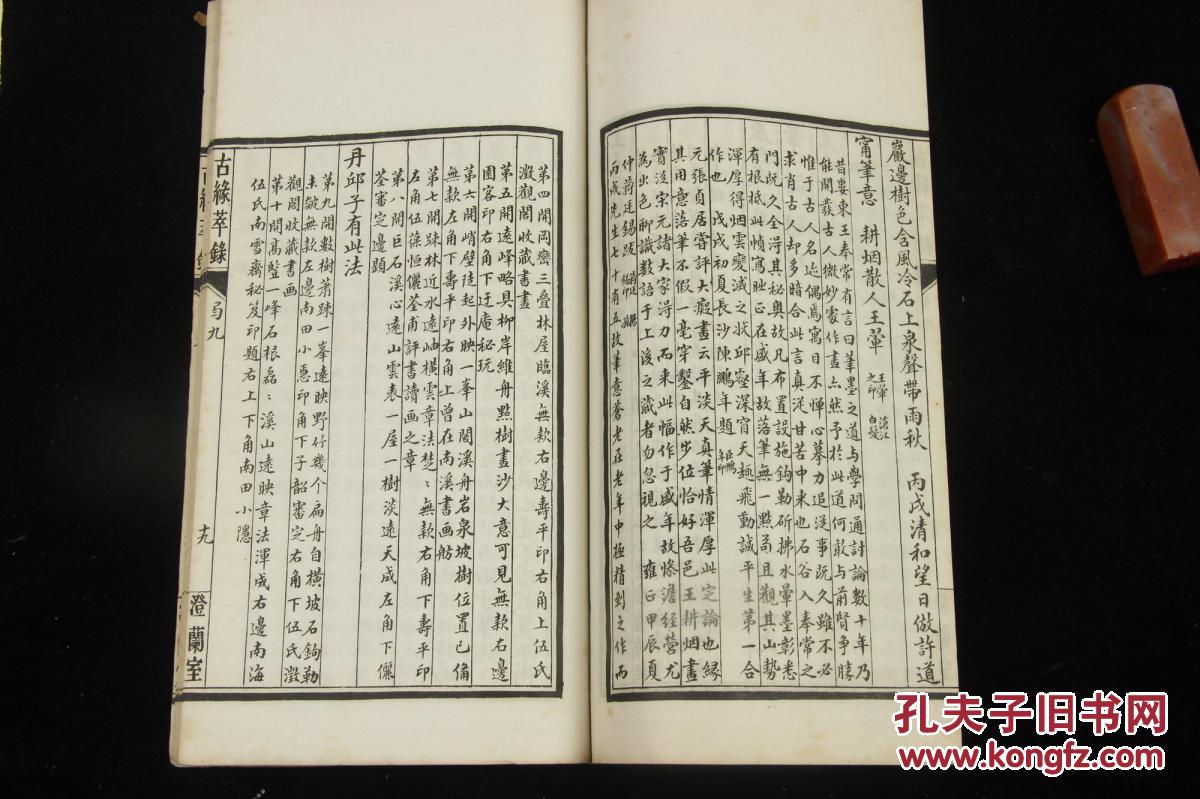 巖邊樹色含風冷石上泉聲帶雨秋 丙戌清和望日倣許道
甯筆意 耕烟散人王翬 王翬之印 白髮
昔婁東王奉常有言曰筆墨之道與學問通討論數十年乃
能開發古人微妙處作畫亦然予於此道何敢與前賢爭勝
惟于古人名迹偶焉寓目不憚心摹力追從事既久雖不必
求肖古人却多暗合此言真從甘苦中来也石谷入奉常之
門既久全得其秘奧故凡布置設施鉤勒斫拂水暈墨彰悉
有根柢此幀寫此正在盛年故落筆無一點苟且觀其山勢
渾厚得烟雲變滅之状邱壑深窅天趣飛動誠平生第一合
作也 戊戌初夏長沙陳鵬年題
元張貞居嘗評大癡畫云平淡天真筆情渾厚此定論也緣
其用意落筆不假一毫穿鑿自然步位恰好吾邑王耕烟畫
實從宋元諸大家得力而来此幅作于盛年故慘澹經營尤
為出色聊識數語于上後之藏者勿忽視之 雍正甲辰夏
仲蒋廷錫跋
丙戌先生七十有五故筆意蒼老在老年中極精到之作而
第四開岡巒三疊林屋臨溪無款右邊壽平印右角上伍氏
澂觀閣收藏書畫
第五開遠峰略具柳岸維舟點樹畫沙大意可見無款右邊
園客印右角下迂庵秘玩
第六開峭壁陡起外映一峯山閣溪舟岩泉坡樹位置已備
無款左角下壽平印右角上曾在南溪書画舫
第七開踈林近水遠岫横雲章法楚〻無款右角下壽平印
左角伍葆恒儷荃甫評書讀画之章
第八開巨石溪心遠山雲表一屋一樹淡遠天成左角下儷
荃審定邊題
丹邱子有此法
第九開數樹蕭踈一峯遠映野竹幾个扁舟自横坡石鉤勒
未皴無款左邊南田小憙印角下子韶審定右角下伍氏澂
觀閣收藏書画
第十開髙䜿一峰石根磊〻溪山遠映章法渾成右邊南海
伍氏南雪齋秘笈印題右上下角南田小隱
古緣萃錄
九
十九
澄蘭室
孔夫子旧书网
www.kongfz.com